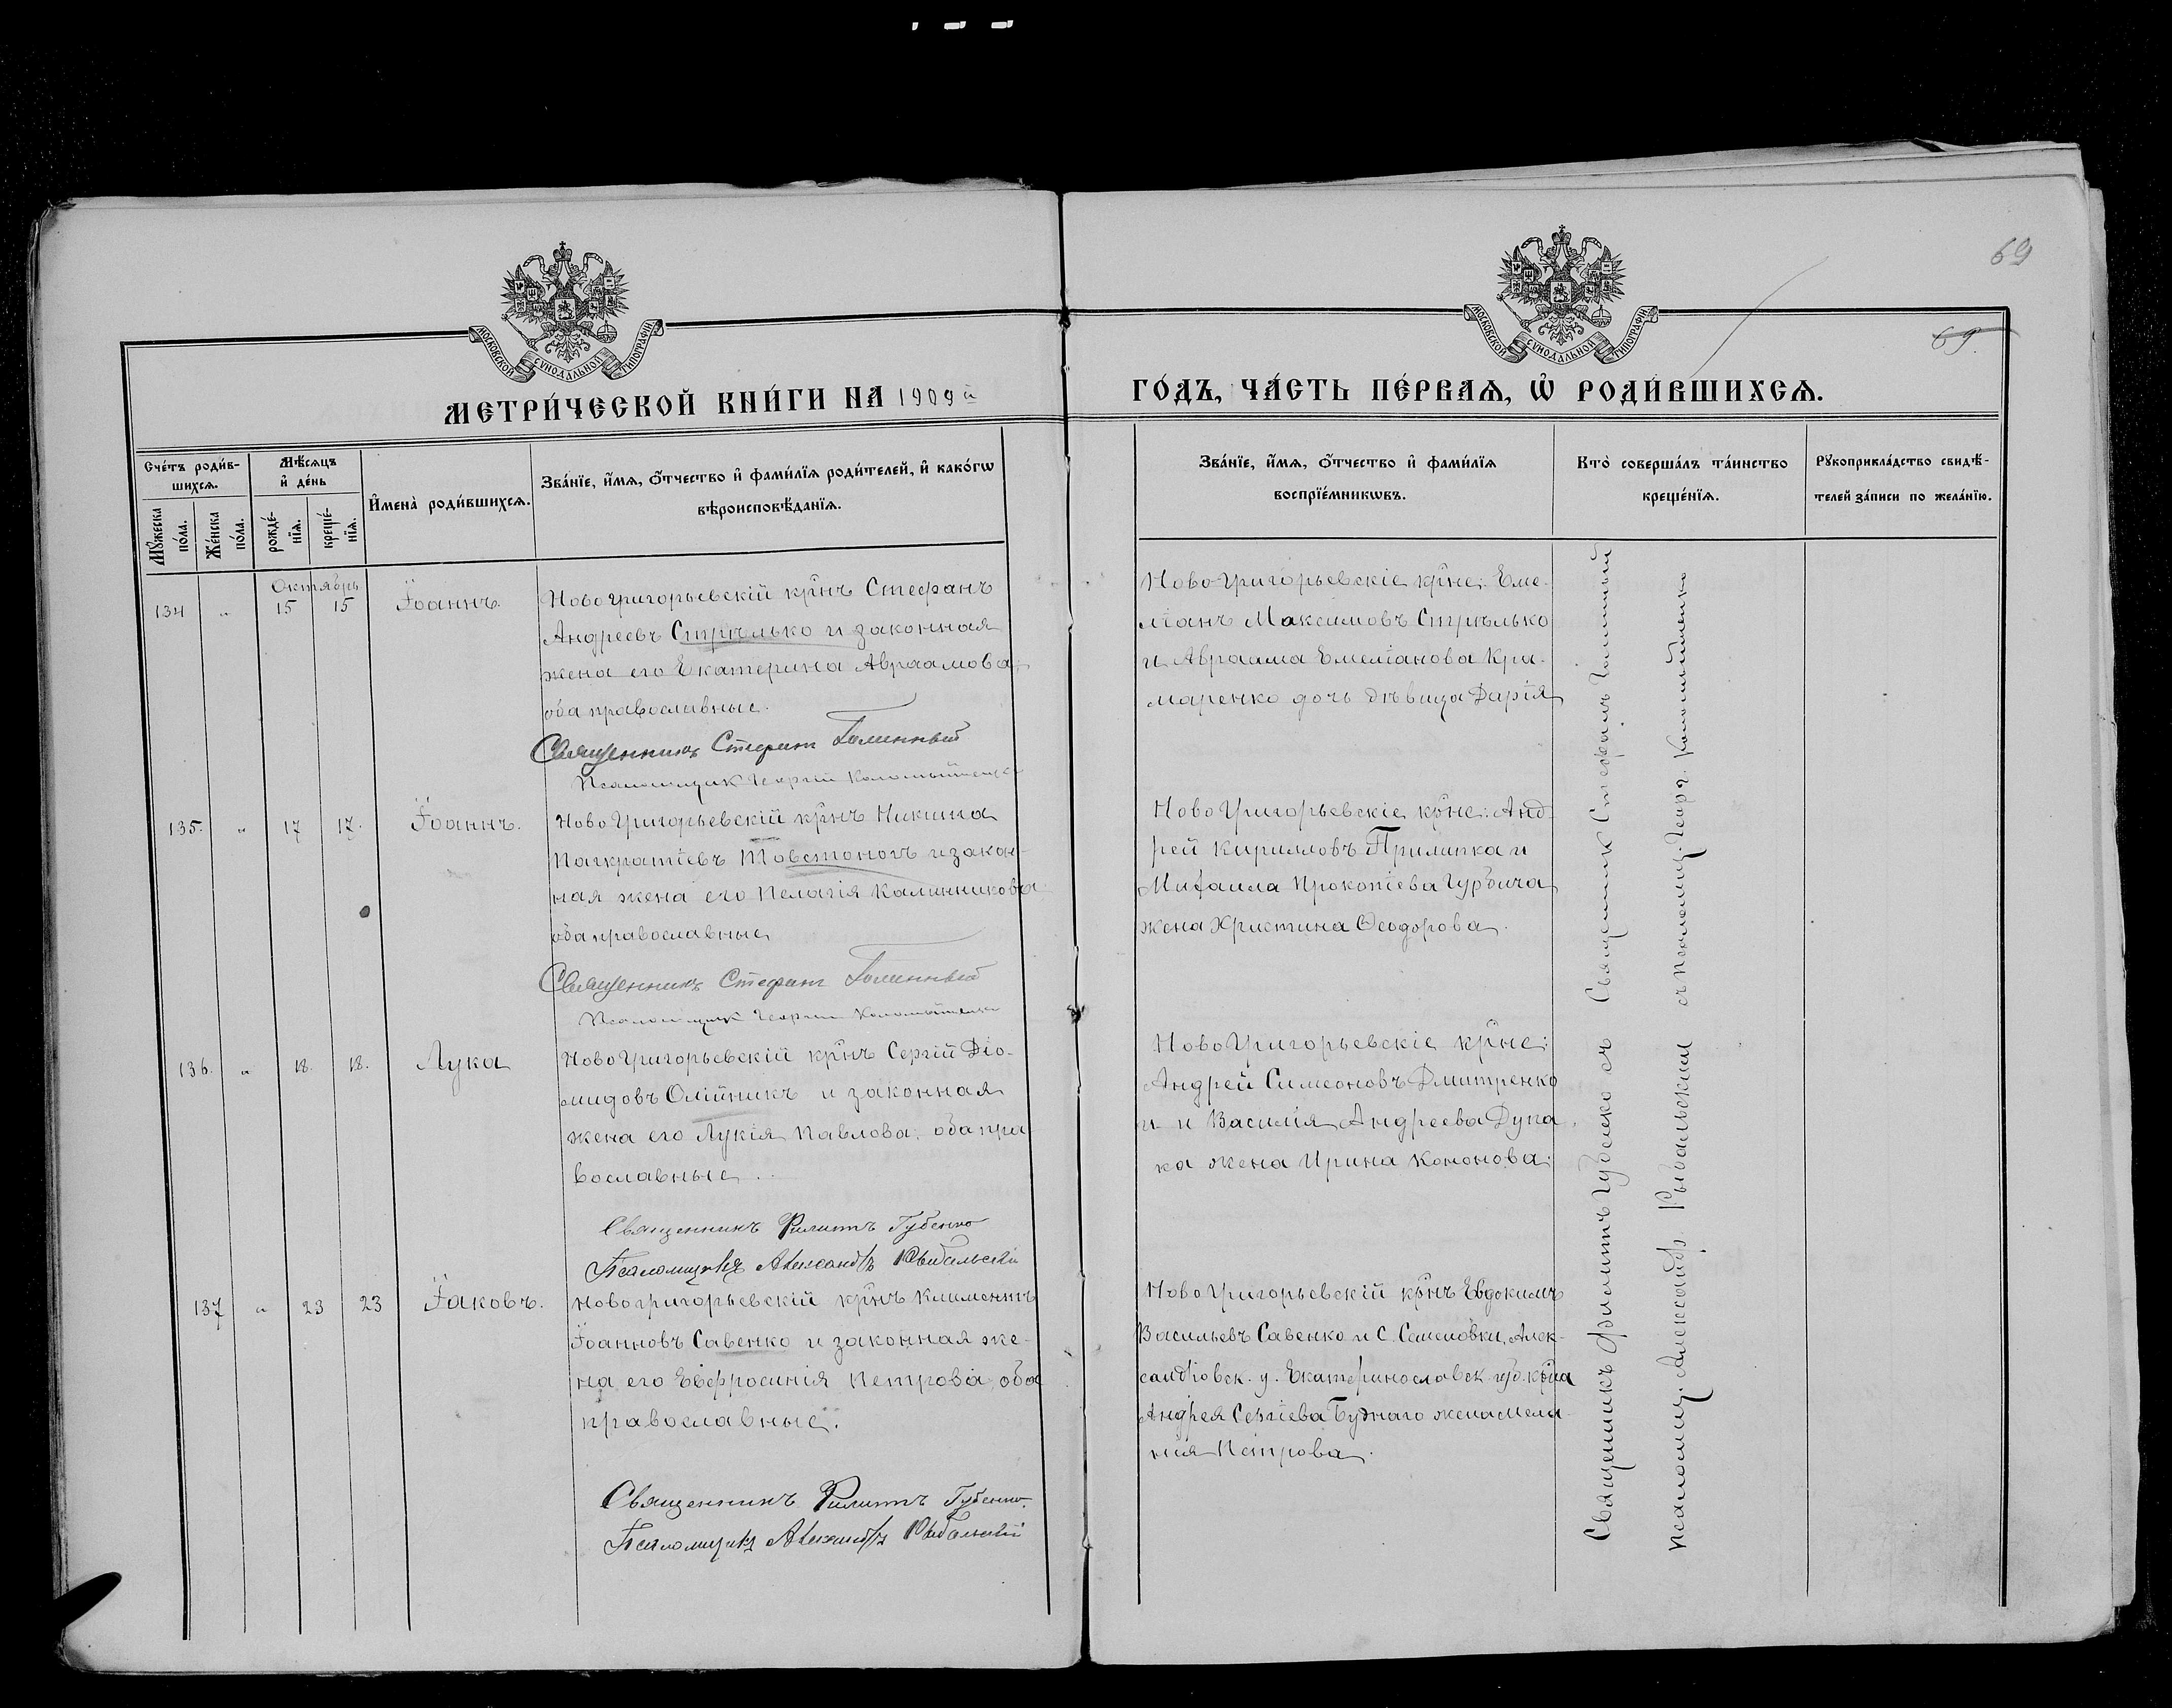 69
69.
МОСКОВСКОЙ СѴНОДАЛЬНОЙ ТИПОГРАФІИ
МОСКОВСКОЙ СѴНОДАЛЬНОЙ ТИПОГРАФІИ
МЕТРИ́ЧЕСКОЙ КНИ́ГИ НА 1909й
ГО́ДЪ, ЧА́СТЬ ПЕ́РВАѦ, Ѽ РОДИ́ВШИХСѦ.
Сче́тъ роди́в-
шихсѧ.
Мꙋ́жеска
по́ла.
Же́нска
по́ла.
Мѣ́сѧцъ
и҆ де́нь
рожде́-
нїѧ.
креще́-
нїѧ.
И҆мена̀ роди́вшихсѧ.
Зва́нїе, и҆́мѧ, ѻ҆́тчество и҆ фами́лїѧ роди́телей, и҆ како́гѡ
вѣроисповѣ́данїѧ.
Зва́нїе, и҆́мѧ, ѻ҆́тчество и҆ фами́лїѧ
воспрїе́мникѡвъ.
Кто̀ соверша́лъ та́инство
креще́нїѧ.
Рꙋкоприкла́дство свидѣ́-
телей за́писи по жела́нїю.
Октябрь
134 " 15 15 Іоаннъ.
Новогригорьевскій крнъ Стефанъ
Андреевъ Стрѣлько и законная
жена его Екатерина Авраамова;
оба православные.
Священникъ Стефанъ
Псаломщик Георгій
Новогригорьевскіе крне: Еме-
ліанъ Максимовъ Стрѣлько
и Авраама Емеліанова Кра-
маренко дочь дѣвица Дарія
135. " 17 17. Іоаннъ.
НовоГригорьевскій крнъ Никита
Панкратіевъ Товстоногъ и закон-
ная жена его Пелагія Калинникова
оба православные
Священникъ Стефанъ
Псаломщик Георгій
НовоГригорьевскіе крне: Анд-
рей Кирилловъ Прилипка и
Михаила Прокопіева Гурбича
жена Христина Ѳеодорова.
136. " 18. 18. Лука
НовоГригорьевскій крнъ Сергій Діо-
мидовъ Олійникъ и законная
жена его Лукія Павлова; оба пра
вославные.
Священникъ Филиппъ Губенко
Псаломщикъ Александръ Рыбальскій
НовоГригорьевскіе крне:
Андрей Симеоновъ Дмитренко
и Василія Андреева
жена Ирина Кононова:
137 " 23 23 Іаковъ.
Новогригорьевскій крнъ Климентъ
Іоанновъ Савенко и законная же-
на его Евфросинія Петрова, оба
православные.
Священникъ Филиппъ Губенко.
Псаломщикъ Александръ Рыбальскій
НовоГригорьевскій крнъ Евдокимъ
Васильевъ Савенко и с. Семеновки, Алек-
сандровск. у. Екатеринославск. губ. крна
Андрея Сергіева Буднаго жена Мела-
нія Петрова.
Священникъ Филиппъ Губенко съ
псаломщ. Александр Рыбальским
Священник Стефанъ
съ псаломщ. Георг.